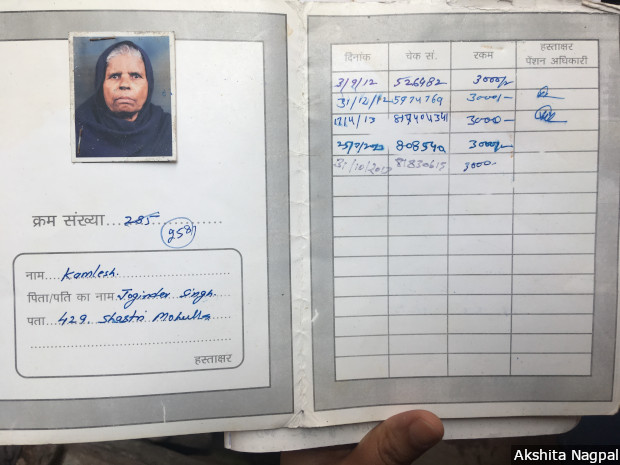 क्रम संख्या....285
958
नाम....Kamlesh.
पिता/पति का नाम Joginder Singh.
पता....429, Shastri Mohulla
हस्ताक्षर
दिनांक चेक सं. रकम हस्ताक्षर पेंशन अधिकारी
3/9/12 526482 3000/-
31/12/12 5974769 3000/-
3000/-
808540 3000/-
31/10/2017 81830615 3000-
Akshita Nagpal